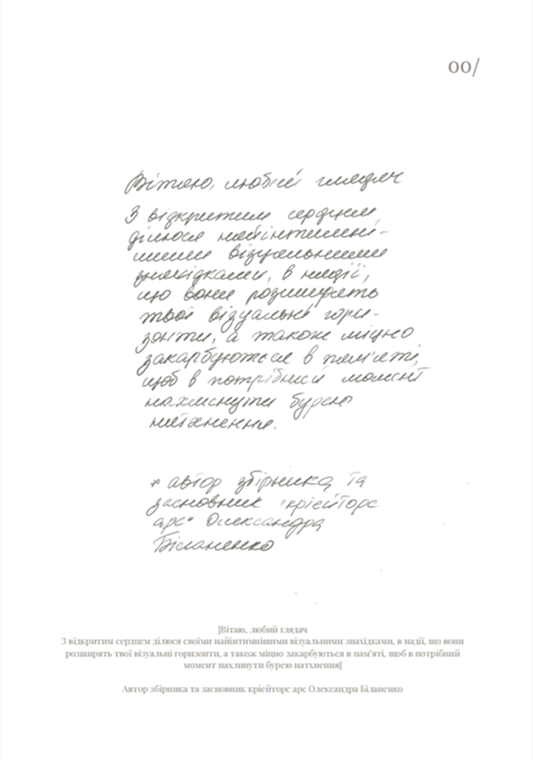 00/
Вітаю, любий глядач
З відкритим серцем,
ділюся найінтимні-
шими візуальними
знахідками, в надії,
що вони розширять
твої візуальні гори-
зонти, а також міцно
закарбуються в пам'яті,
щоб в потрібний момент
нахлинути бурею
натхнення.
* автор збірника та
засновник "крієйторс
арс" Олександра
Біланенко
[Вітаю, любий глядач
З відкритим серцем ділюся своїми найінтимнішими візуальними знахідками, в надії, що вони
розширять твої візуальні горизонти, а також міцно закарбуються в пам'яті, щоб в потрібний
момент нахлинути бурею натхнення]
Автор збірника та засновник крієйторс арс Олександра Біланенко